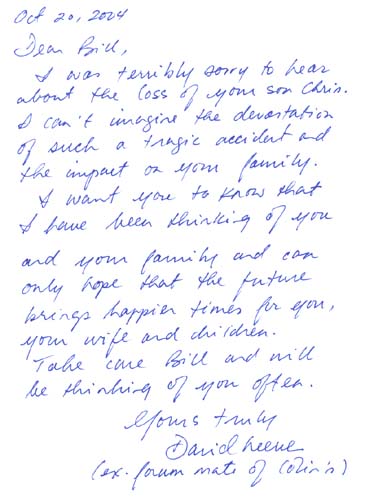 Oct 20, 2004
Dear Bill,
I was terribly sorry to hear
about the loss of your son Chris.
I can't imagine the devastation
of such a tragic accident and
the impact on your family.
I want you to know that
I have been thinking of you
and your family and can
only hope that the future
brings happier times for you,
your wife and children.
Take care Bill and will
be thinking of you often.
Yours truly
David Keene
(ex. forum mate of Colin's)